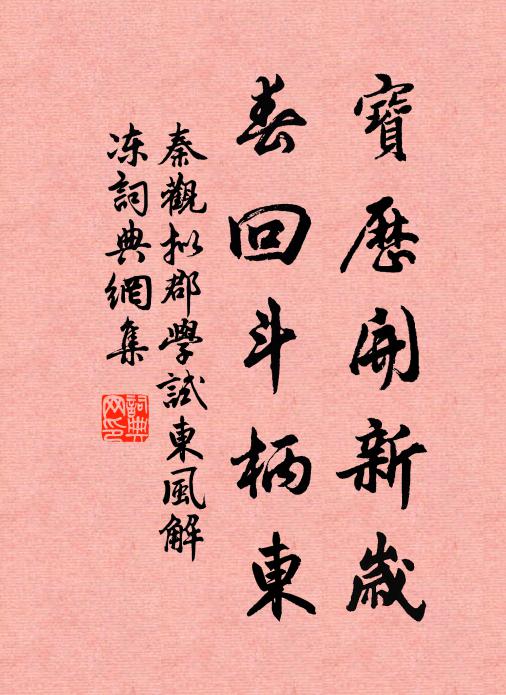 寶歷開新歲
春回斗柄東
秦觀擬郡學試東風解
冻詞典網集
詞典網印